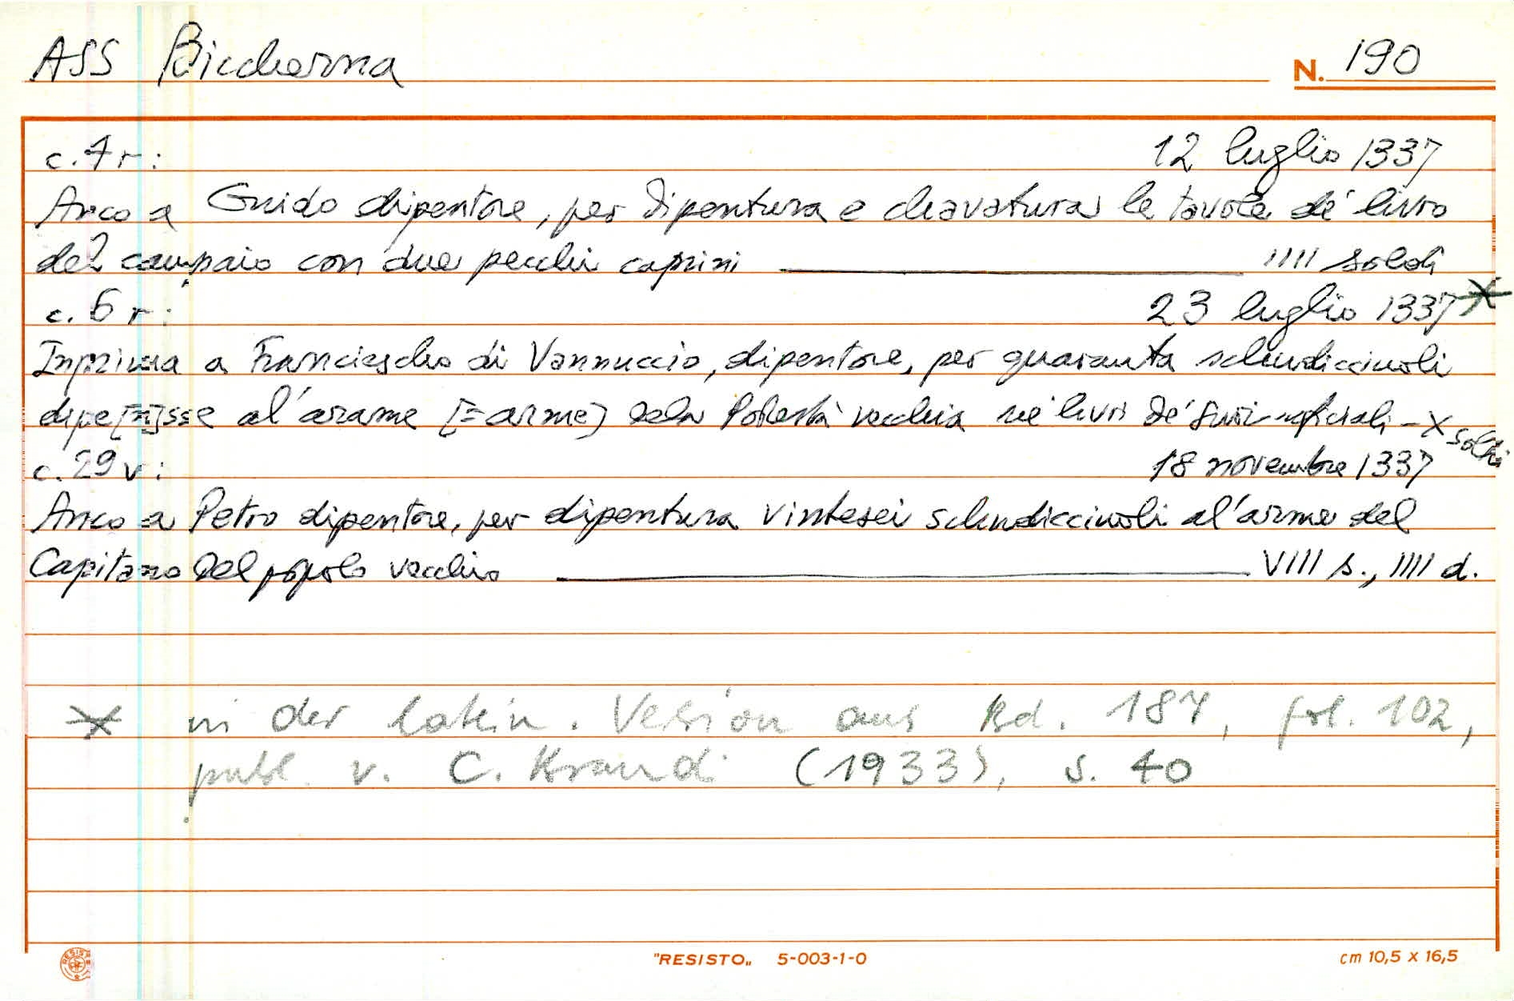 ASS Biccherna N. 190
c. 4 r: 12 luglio 1337
Anco a Guido dipentore, per dipentura e chavatura le tavole de' livro
del campaio con due pecchi caprini IIII soldi
c. 6 r: 23 luglio 1337 *
Inprima a Franciescho di Vannuccio, dipentore, per quaranta schudicciuoli
dipe[n]sse al'arame [=arme] dela Podestà vecchia ne' livri de' suoi uficiali - X soldi
c. 29 v: 18 novembre 1337
Anco a Petro dipentore, per dipentura vintesei schudicciuoli al'arme del
Capitano del popolo vecchio VIII s., IIII d.
* in der latein. Version aus Bd. 187, fol. 102,
publ. v. C. Brandi (1933), S. 40
RESISTO
"RESISTO„ 5-003-1-0 cm 10,5 x 16,5